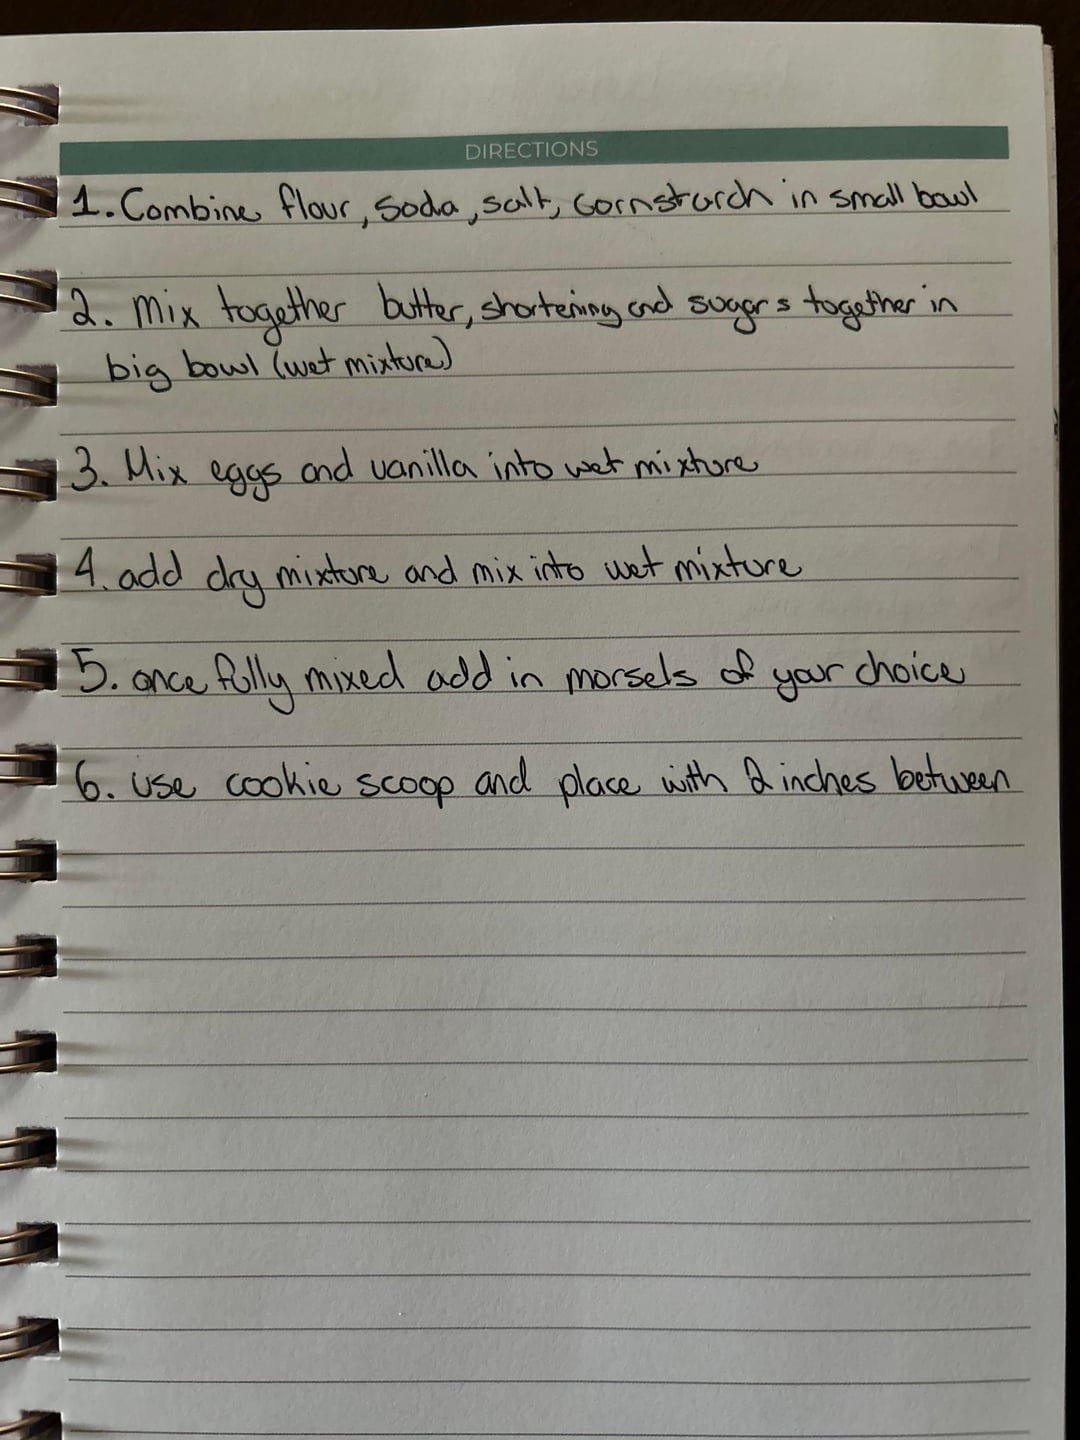 DIRECTIONS
1. Combine flour, soda, salt, cornstarch in small bowl
2. Mix together butter, shortening and sugars together in
big bowl (wet mixture)
3. Mix eggs and vanilla into wet mixture
4. add dry mixture and mix into wet mixture
5. once fully mixed add in morsels of your choice
6. use cookie scoop and place with 2 inches between